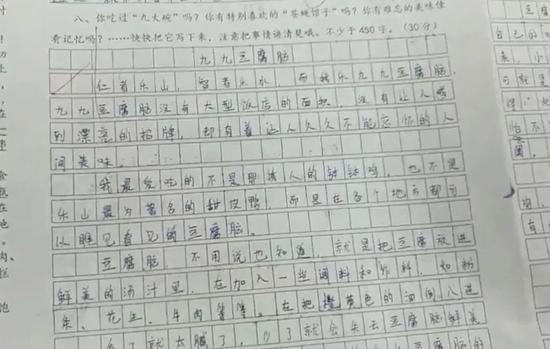 八、你吃过“九大碗”吗?你有特别喜欢的“苍蝇馆子”吗?你有难忘的美味佳
肴记忆吗?……快快把它写下来,注意把事情讲清楚哦。不少于450字。(30分)
九九豆腐脑
仁者乐山,智者乐水,而我乐九九豆腐脑。
九九豆腐脑没有大型饭店的面积,没有让人感
到漂亮的招牌,却有着让人久久不能忘怀的人
间美味。
我最爱吃的不是那诱人的钵钵鸡,也不是
乐山最为著名的甜皮鸭,而是在各个地方都可
以随见看见的豆腐脑。
豆腐脑,不用说也知道,就是把豆腐放进
鲜美的汤汁里,在加入一些调料和作料,如粉
条、花生、牛肉等等。在把橙黄色的油倒入进
了就太腻了,少了就会失去豆腐脑鲜美